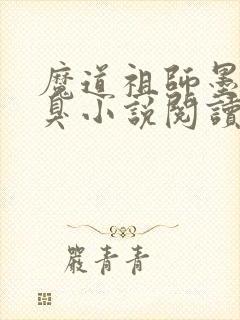 魔道祖師墨
臭小說閱讀
嚴青青